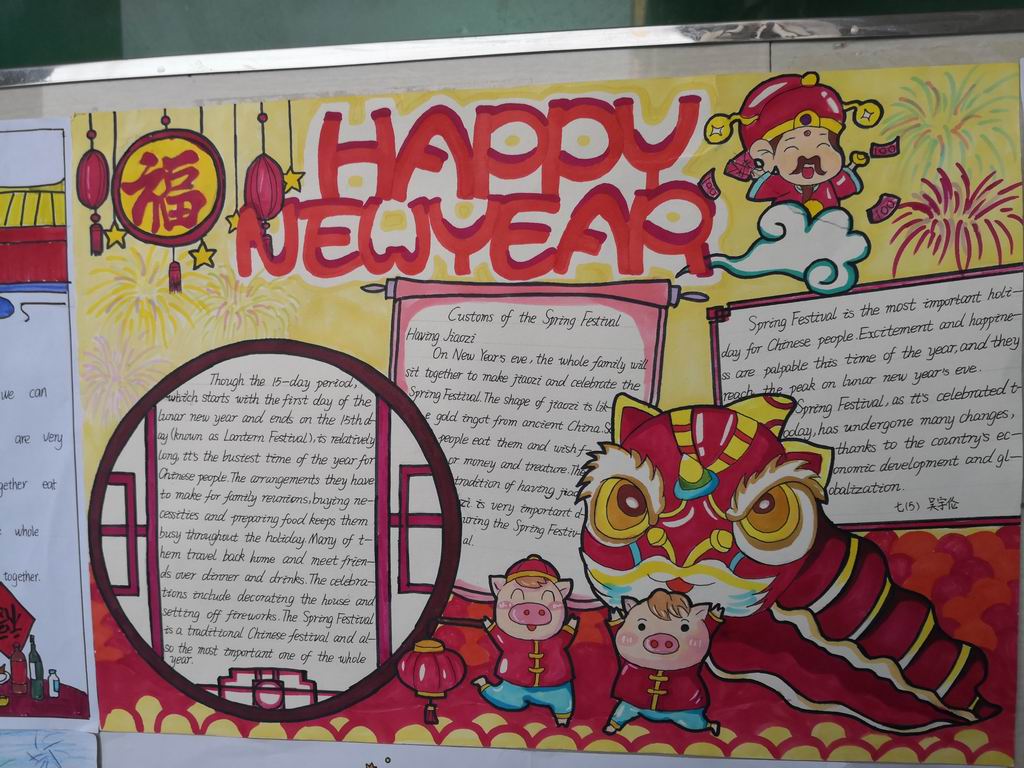 福
HAPPY
NEWYEAR
100
100
100
Though the 15-day period,
which starts with the first day of the
lunar new year and ends on the 15th d-
ay (known as Lantern Festival), is relatively
long, it's the busiest time of the year for
Chinese people. The arrangements they have
to make for family reunions, buying ne-
cessities and preparing food keeps them
busy throughout the holiday. Many of t-
hem travel back home and meet frien-
ds over dinner and drinks. The celebra-
tions include decorating the house and
setting off fireworks. The Spring Festival
is a traditional Chinese festival and al-
so the most important one of the whole
year.
Customs of the Spring Festival
Having Jiaozi
On New Year's eve, the whole family will
sit together to make jiaozi and celebrate the
Spring Festival. The shape of jiaozi is lik-
e gold ingot from ancient China. So
people eat them and wish f-
or money and treature. The
tradition of having jiao-
zi is very important d-
uring the Spring Festiv-
al.
Spring Festival is the most important holi-
day for Chinese people. Excitement and happine-
ss are palpable this time of the year, and they
reach the peak on lunar new year's eve.
Spring Festival, as it's celebrated t-
oday, has undergone many changes,
thanks to the country's ec-
onomic development and gl-
obalization.
七(5) 吴宇伦
we can
are very
gether eat
whole
together.